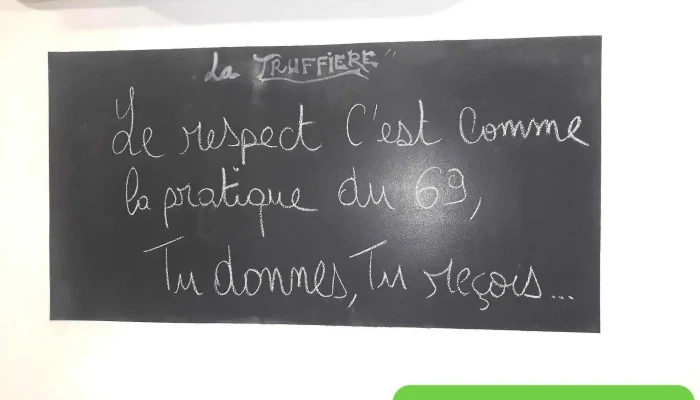 La TRUFFIERE"
Le respect C'est Comme
la pratique du 69,
Tu donnes, Tu reçois...